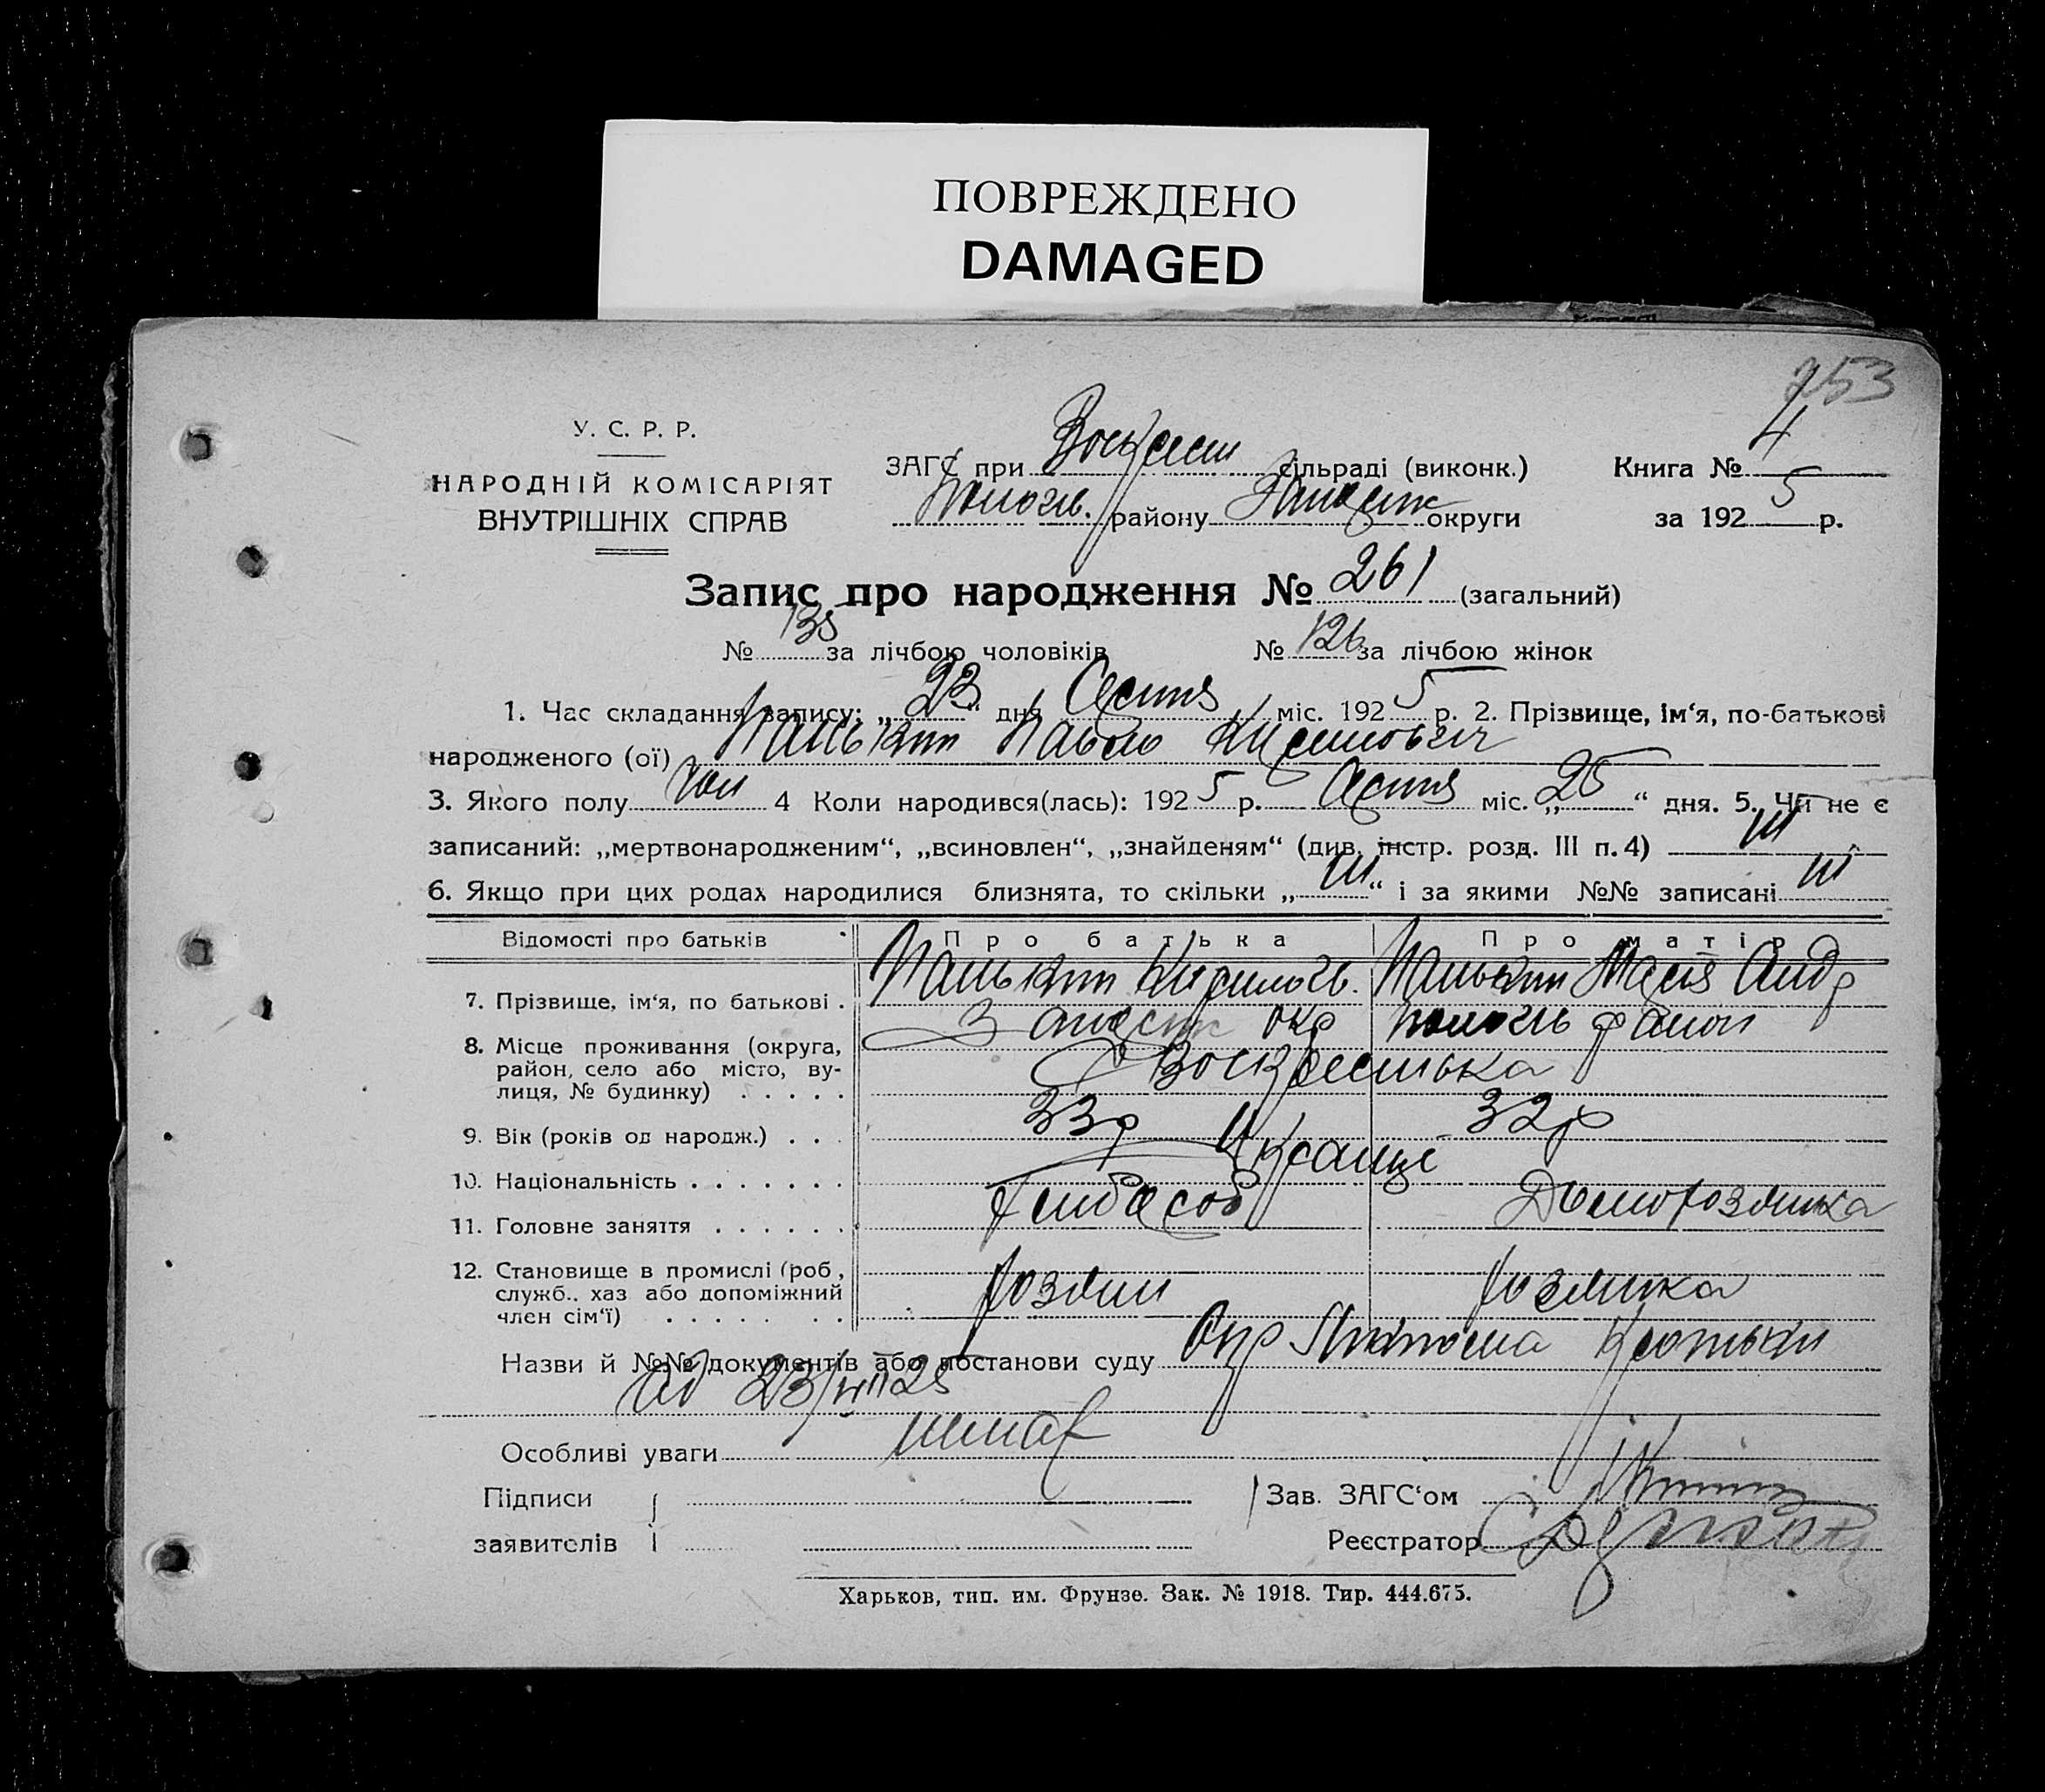 ПОВРЕЖДЕНО
DAMAGED
253
У. С. Р. Р.
НАРОДНІЙ КОМІСАРІЯТ
ВНУТРІШНІХ СПРАВ
ЗАГС при Воскресен сільраді (виконк.)
Пологів. району Запоріж округи
Книга № 4
за 1925 р.
Запис про народження № 261 (загальний)
№ 135 за лічбою чоловіків № 126 за лічбою жінок
1. Час складання запису: „23“ дня Серпня міс. 1925 р. 2. Прізвище, ім‘я, по-батькові
народженого (ої) Панькин Павло Кирилович
3. Якого полу чол 4 Коли народився(лась): 1925 р. Серпня міс. „25“ дня. 5. Чи не є
записаний: „мертвонародженим“, „всиновлен“, „знайденям“ (див. інстр. розд. III п. 4) ні
6. Якщо при цих родах народилися близнята, то скільки „ні“ і за якими №№ записані ні
Відомості про батьків Про батька Про матір
7. Прізвище, ім‘я, по батькові . Панькин Кирил Панькин Марія Андр
8. Місце проживання (округа, Запоріж окр Пологів район
район, село або місто, ву- Воскресенька
лиця, № будинку) . . . . .
9. Вік (років од народж.) . . . 33р 32р
10. Національність . . . . . . . Українці
11. Головне заняття . . . . . . Хлібороб Домохозяйка
12. Становище в промислі (роб.,
служб., хаз або допоміжний Хозяин Хозяйка
член сім‘ї) . . . . . . .
Назви й №№ документів або постанови суду
від 23/VIII 25
Особливі уваги немає
Підписи
заявителів
Зав. ЗАГС‘ом
Реєстратор
Харьков, тип. им. Фрунзе. Зак. № 1918. Тир. 444.675.